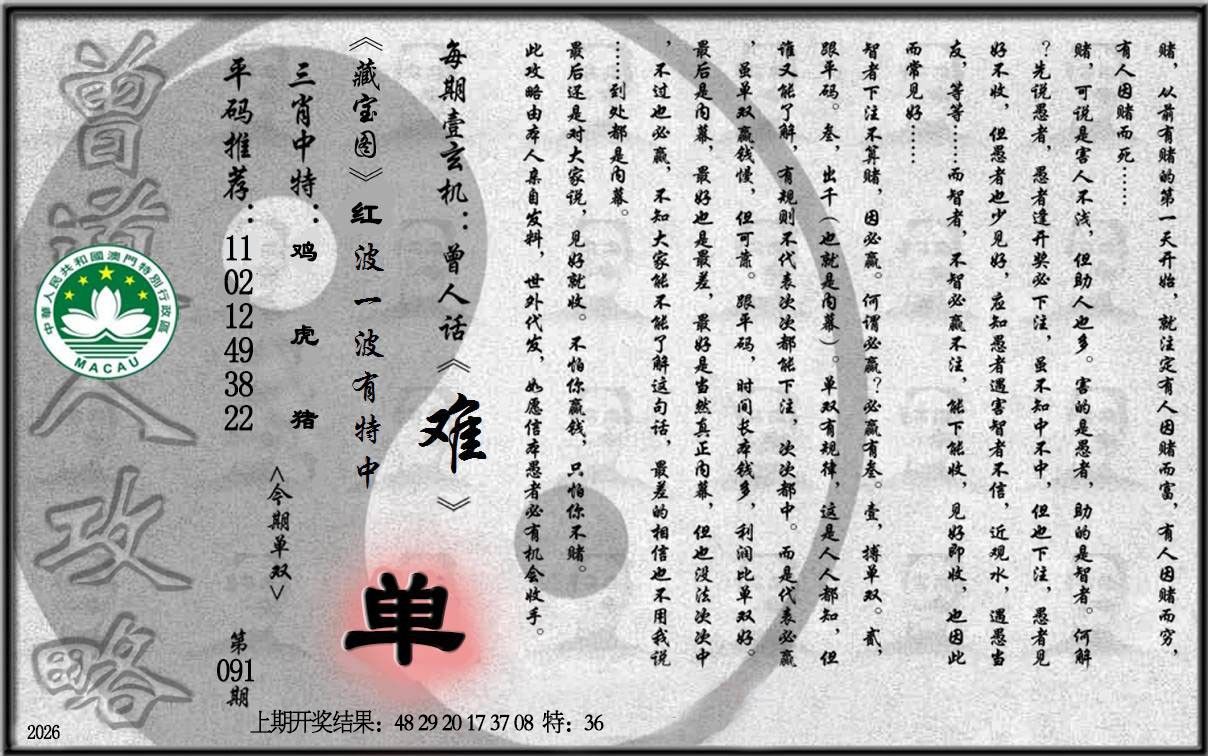 赌，从前有赌的第一天开始，就注定有人因赌而富，有人因赌而穷，
有人因赌而死……
赌，可说是害人不浅，但助人也多。害的是愚者，助的是智者。何解
？先说愚者，愚者逢开奖必下注，虽不知中不中，但也下注，愚者见
好不收，但愚者也少见好，应知愚者遇害智者不信，近观水，遇愚当
友，等等……而智者，不智必赢不注，能下能收，见好即收，也因此
而常见好……
智者下注不算赌，因必赢。何谓必赢？必赢有叁。壹，搏单双。贰，
跟平码。叁，出千（也就是内幕）。单双有规律，这是人人都知，但
谁又能了解，有规则不代表次次都能下注，次次都中。而是代表必赢
，虽单双赢钱慢，但可靠。跟平码，时间长本钱多，利润比单双好。
最后是内幕，最好也是最差，最好是当然真正内幕，但也没法次次中
，不过也必赢，不知大家能不能了解这句话，最差的相信也不用我说
……到处都是内幕。
最后还是对大家说，见好就收。不怕你赢钱，只怕你不赌。
此攻略由本人亲自发料，世外代发，如愿信本愚者必有机会收手。
每期壹玄机：曾人话《难》
《藏宝图》红波一波有特中
三肖中特：鸡虎猪
平码推荐：11 02 12 49 38 22
<今期单双>
单
第091期
曾道人攻略
中華人民共和國澳門特別行政區
MACAU
上期开奖结果：48 29 20 17 37 08 特：36
2026